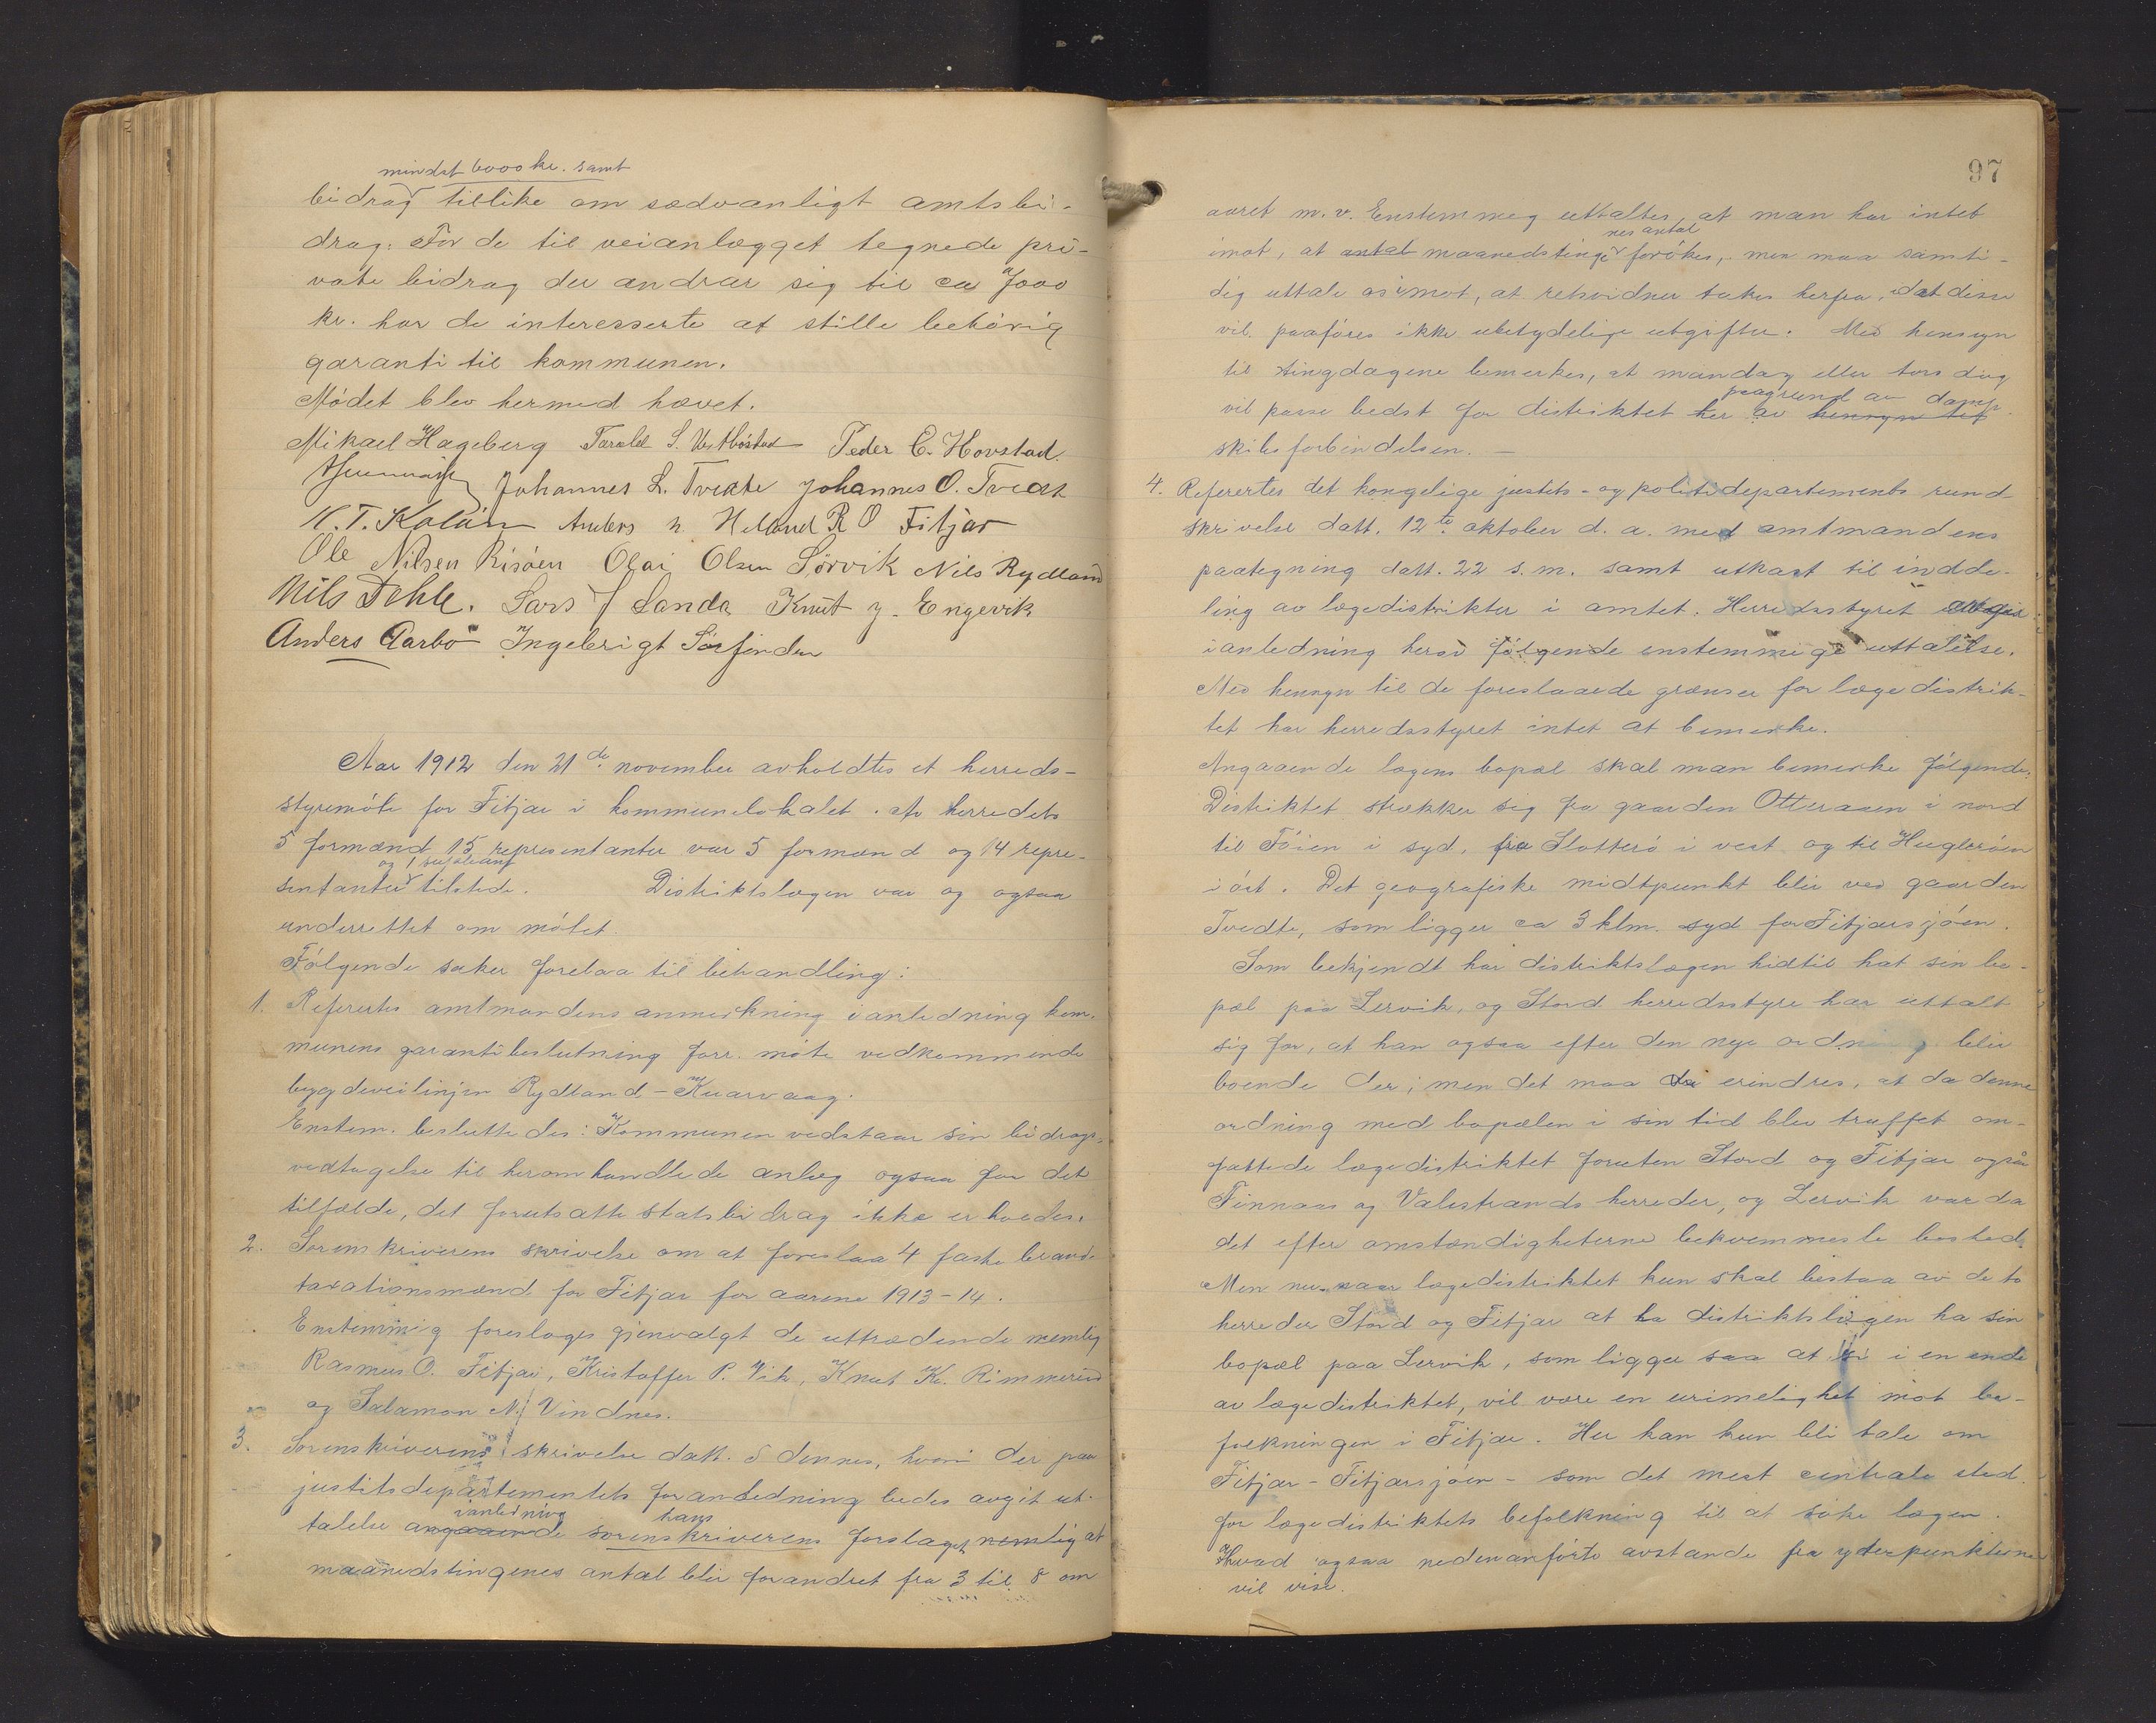 mindst 6000 kr. samt
bidrag tillike om sedvanligt amtsbi-
drag. For de til veianlægget tegnede pri-
vate bidrag der andrar sig til ca 7000
kr. har de interesserte at stille behörig
garanti til kommunen.
Mödet blev hermed hævet.
Mikael Hageberg Tarald S. Vestböstad Peder C. Hovstad.
Johannes L. Tveite Johannes O. Tveit
N. T. Koløen Anders N. Heland R O Fitjar
Ole Nilsen Risöen Olai Olsen Sörvik Nils Rydland
Nils Dehle. Lars J Landa Knut J. Engevik
Anders Aarbö Ingebrigt Sörfinden
Aar 1912 den 21de november avholdtes et herreds-
styremöte for Fitjar i kommunelokalet. Av herredets
5 formænd 15 representanter var 5 formænd og 14 repre-
og 1 supleant
sentanter tilstede. Distriktslægen var og ogsaa
underrettet om mötet.
Fölgende saker forelaa til behandling:
1. Refertes amtmandens anmerkning i anledning kom-
munens garantibeslutning forr. möte vedkommende
bygdeveilinjen Rydland - Kuarvaag.
Enstem. besluttedes: Kommunen vedstaar sin bidrags-
vedtagelse til heromhandlede anlæg ogsaa for det
tilfælde, det forutsatte statsbidrag ikke erholdes.
2. Sorenskriverens skrivelse om at foreslaa 4 faste brand-
taxationsmænd for Fitjar for aarene 1913-14.
Enstemmig foreslages gjenvalgt de uttrædende nemlig
Rasmus O. Fitjar, Kristoffer P. Vik, Knut K. Rimmereid
og Salamon N. Vindnes.
3. Sorenskriverens skrivelse datt. 8 dennes, hvori der paa
justitsdepartementets foranledning bedes avgit ut-
ianledning hans
talelse angaaende sorenskriverens forslaget nemlig at
maanedstingenes antal blir forandret fra 3 til 8 om
97
aaret m. v. Enstemmig uttaltes, at man har intet
nes antal
imot, at antal maanedstinge forökes, men maa samti-
dig uttale os imot, at retsvidner takes herfra, da disse
vil paaföres ikke ubetydelige utgifter. Med hensyn
til tingdagene bemerkes, at mandag eller torsdag
paagrund av damp-
vil passe bedst for distriktet her av hensyn til
skibsforbindelsen. -
4. Referertes det kongelige justits- og politidepartements rund-
skrivelse datt. 12te oktober d. a. med amtmandens
paategning datt. 22 s. m. samt utkast til indde-
ling av lægedistrikter i amtet. Herredsstyret avgir
i anledning herav fölgende enstemmige uttalelse.
Med hensyn til de foreslaaede grænser for lægedistrik-
tet har herredsstyret intet at bemerke.
Angaaende lægens bopæl skal man bemerke fölgende:
Distriktet strækker sig fra gaarden Otteraaen i nord
til Föien i syd, fra Slotterö i vest og til Huglöen
i öst. Det geografiske midtpunkt blir ved gaarden
Tvedte, som ligger ca 3 klm. syd for Fitjarsjöen.
Som bekjendt har distriktslægen hidtil hat sin bo-
pæl paa Lervik, og Stord herredsstyre har uttalt
sig for, at han ogsaa efter den nye ordning blir
boende der; men det maa da erindres, at da denne
ordning med bopælen i sin tid blev truffet om-
fattede lægedistriktet foruten Stord og Fitjar også
Finnaas og Valestrands herreder, og Lervik var da
det efter omstændigheterne bekvemmeste bosted.
Men nu, naar lægedistriktet kun skal bestaa av de to
herreder Stord og Fitjar at la distriktslægen ha sin
bopæl paa Lervik, som ligger saa at si i en ende
av lægedistriktet, vil være en urimelighet mot be-
folkningen i Fitjar. Her kan kun bli tale om
Fitjar - Fitjarsjöen - som det mest centrale sted
for lægedistriktets befolkning til at söke lægen.
Hvad ogsaa nedenanförte avstande fra yderpunkterne
vil vise.